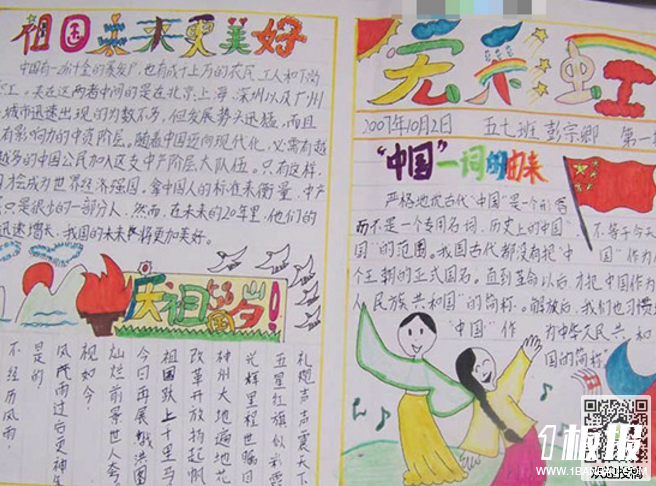 祖国未来更美好
工。夹在这两者中间的是在北京、上海、深圳以及广州
城市迅速出现的为数不多,但发展势头迅猛,而且
有影响力的中资阶层。随着中国迈向现代化,必需有越
越多的中国公民加入这支中产阶层大队伍。只有这样,
才会成为世界经济强国,拿中国人的标准来衡量,中产
只是很少的一部分人。然而,在未来的20年里,他们的
迅速增长,我国的未来将更加美好。
庆祖国58岁!
礼炮声声震天下
五星红旗似彩霞
光辉里程世瞩目
神州大地遍地花
改革开放扬起帆
祖国跃上千里马
今日再展鸿图
灿烂前景世人夸
视如今,
风雨过后更神
是的
不经历风雨,
天虹
2007年10月2日 五七班 彭宗卿 第一
"中国"一词的由来
严格地说古代"中国"是一个形容
而不是一个专用名词,历史上的中国 不等于今天
国"的范围。我国古代都没有把"中 国"作为
个王朝的正式国名。直到革命以后,才把中国作为
"民族共和国"的简称。解放后,我们也习惯
"中国"作 为中华人民共和
国的简称
1板报
WWW.1BANBAO.COM
欢迎投稿